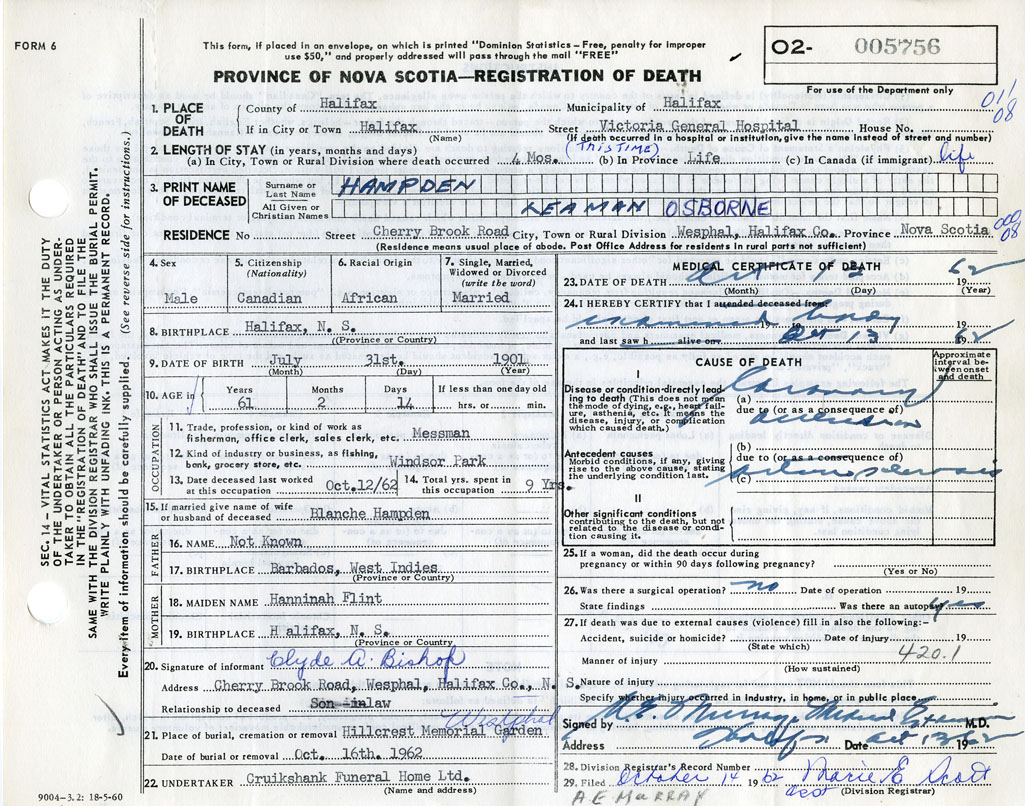 FORM 6
This form, if placed in an envelope, on which is printed "Dominion Statistics – Free, penalty for improper
use $50," and properly addressed will pass through the mail "FREE"
O2- 005756
For use of the Department only
PROVINCE OF NOVA SCOTIA—REGISTRATION OF DEATH
011
08
1. PLACE OF DEATH
County of Halifax Municipality of Halifax
If in City or Town Halifax Street Victoria General Hospital House No.
(Name) (If death occurred in a hospital or institution, give the name instead of street and number)
2. LENGTH OF STAY (in years, months and days) (THIS TIME)
(a) In City, Town or Rural Division where death occurred 4 Mos. (b) In Province Life (c) In Canada (if immigrant) life
3. PRINT NAME OF DECEASED
Surname or Last Name HAMPDEN
All Given or Christian Names LEAMAN OSBORNE
000
08
RESIDENCE No Street Cherry Brook Road City, Town or Rural Division Wesphal, Halifax Co. Province Nova Scotia
(Residence means usual place of abode. Post Office Address for residents in rural parts not sufficient)
4. Sex
Male
5. Citizenship
(Nationality)
Canadian
6. Racial Origin
African
7. Single, Married,
Widowed or Divorced
(write the word)
Married
8. BIRTHPLACE Halifax, N. S.
(Province or Country)
9. DATE OF BIRTH July 31st. 1901
(Month) (Day) (Year)
10. AGE in Years Months Days If less than one day old
61 2 14 hrs. or min.
OCCUPATION
11. Trade, profession, or kind of work as
fisherman, office clerk, sales clerk, etc. Messman
12. Kind of industry or business, as fishing,
bank, grocery store, etc. Windsor Park
13. Date deceased last worked
at this occupation Oct.12/62
14. Total yrs. spent in
this occupation 9 Yrs.
15. If married give name of wife
or husband of deceased Blanche Hampden
FATHER
16. NAME Not Known
17. BIRTHPLACE Barbados, West Indies
(Province or Country)
MOTHER
18. MAIDEN NAME Hanninah Flint
19. BIRTHPLACE H alifax, N. S.
(Province or Country
20. Signature of informant Clyde A. Bishop
Address Cherry Brook Road, Wesphal, Halifax Co., N. S.
Relationship to deceased Son in law
Westphal
21. Place of burial, cremation or removal Hillcrest Memorial Garden
Date of burial or removal Oct. 16th. 1962
22. UNDERTAKER Cruikshank Funeral Home Ltd.
(Name and address)
9004–3.2: 18-5-60
MEDICAL CERTIFICATE OF DEATH
23. DATE OF DEATH Oct 13 19 62
(Month) (Day) (Year)
24. I HEREBY CERTIFY that I attended deceased from
examined body 19
and last saw h alive on Oct 13 19 62
CAUSE OF DEATH
Approximate
interval be-
tween onset
and death
I
Disease or condition directly lead-
ing to death (This does not mean
the mode of dying, e.g., heart fail-
ure, asthenia, etc. It means the
disease, injury, or complication
which caused death.)
(a) Coronary
due to (or as a consequence of)
occlusion
Antecedent causes
Morbid conditions, if any, giving
rise to the above cause, stating
the underlying condition last.
(b)
due to (or as a consequence of)
(c)
II
Other significant conditions
contributing to the death, but not
related to the disease or condi-
tion causing it.
25. If a woman, did the death occur during
pregnancy or within 90 days following pregnancy?
(Yes or No)
26. Was there a surgical operation? no Date of operation 19
State findings Was there an autopsy yes
27. If death was due to external causes (violence) fill in also the following:–
Accident, suicide or homicide? Date of injury 19
(State which)
420.1
Manner of injury
(How sustained)
Nature of injury
Specify whether injury occurred in industry, in home, or in public place
Signed by A. E. Murray Medical Examiner M.D.
Address Halifax Date Oct 13 1962
28. Division Registrar's Record Number
29. Filed October 14 1962 Marie E Scott
(Division Registrar)
A E MURRAY
SEC. 14 – VITAL STATISTICS ACT MAKES IT THE DUTY
OF THE UNDERTAKER OR PERSON ACTING AS UNDER-
TAKER TO OBTAIN ALL THE PARTICULARS REQUIRED
IN THE "REGISTRATION OF DEATH" AND TO FILE THE
SAME WITH THE DIVISION REGISTRAR WHO SHALL ISSUE THE BURIAL PERMIT.
WRITE PLAINLY WITH UNFADING INK. THIS IS A PERMANENT RECORD.
Every item of information should be carefully supplied. (See reverse side for instructions.)